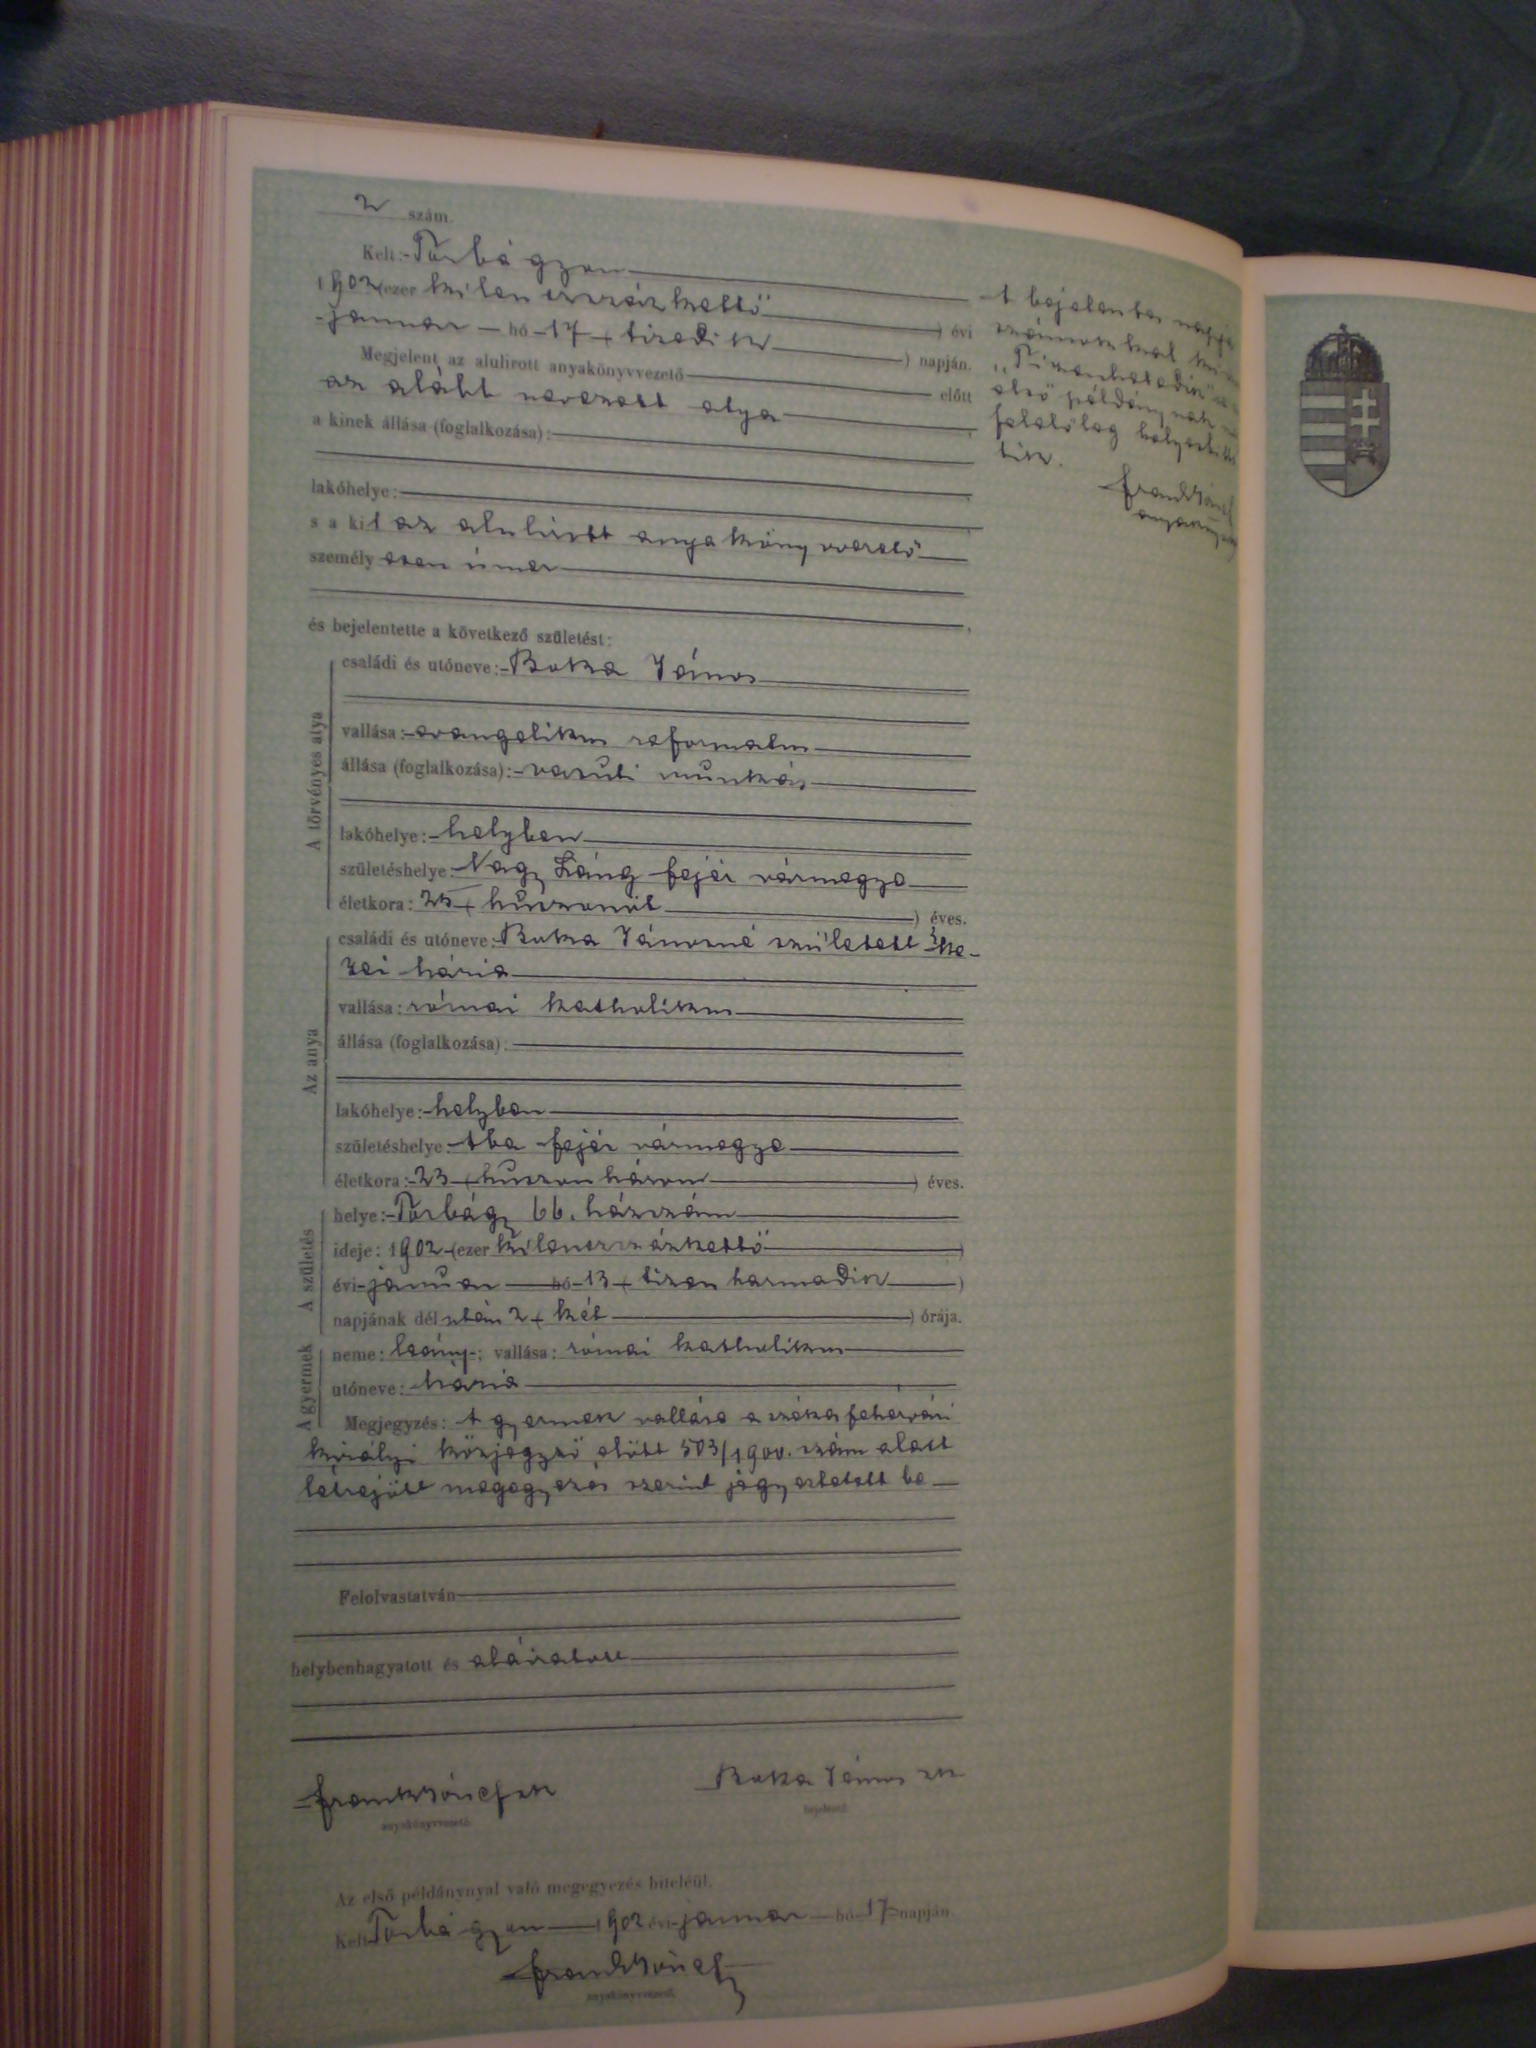 2 szám.
Kelt: Torbágyon
1902 (ezer kilenczszázkettő ) évi
január hó 17 ( tized ik ) napján.
Megjelent az alulirott anyakönyvvezető előtt
az alább nevezett atya
a kinek állása (foglalkozása):
lakóhelye:
s a kit az alulirott anyakönyvvezető
személy esen ismer
és bejelentette a következő születést:
A törvényes atya
családi és utóneve: Buka János
vallása: evangelikus reformatus
állása (foglalkozása): vasuti munkás
lakóhelye: helyben
születéshelye: Nagy Láng fejér vármegye
életkora: 25 ( huszonöt ) éves.
Az anya
családi és utóneve: Buka Jánosné született
Mária
vallása: római katholikus
állása (foglalkozása):
lakóhelye: helyben
születéshelye: Aba fejér vármegye
életkora: 23 ( huszonhárom ) éves.
A születés
helye: Torbágy 66. házszám
ideje: 1902 (ezer kilenczszázkettő )
évi január hó 13 ( tizenharmadik )
napjának dél után 2 ( két ) órája.
A gyermek
neme: leány; vallása: római katholikus
utóneve: Mária
Megjegyzés: A gyermek vallása a székesfehérvári
királyi közjegyző előtt 503/1900. szám alatt
létrejött megegyezés szerint jegyeztetett be
Felolvastatván
helybenhagyatott és aláiratott
Frank József sk
anyakönyvvezető
Buka János sk
bejelentő
Az első példánynyal való megegyezés hiteléül.
Kelt Torbágyon 1902 évi január hó 17 napján
Frank József
anyakönyvvezető
A bejelentés napja
első példánynak
felelőleg
Frank József